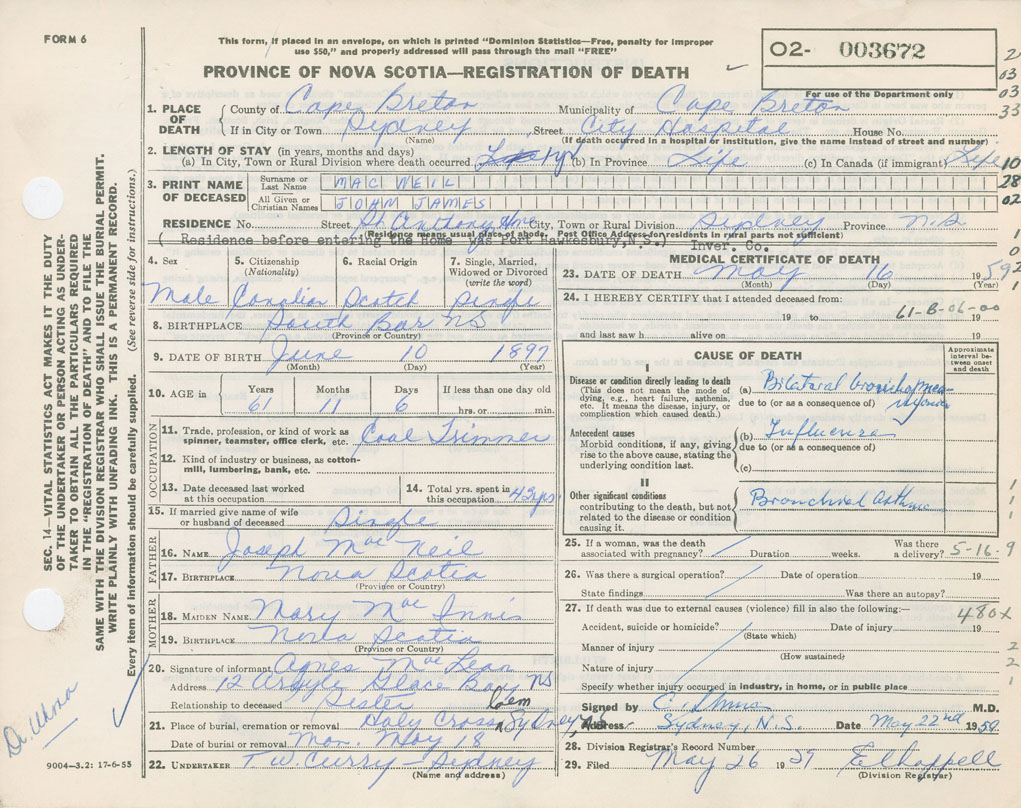 FORM 6
This form, if placed in an envelope, on which is printed "Dominion Statistics—Free, penalty for improper
use $50," and properly addressed will pass through the mail "FREE"
O2- 003672
For use of the Department only
PROVINCE OF NOVA SCOTIA—REGISTRATION OF DEATH
1. PLACE OF DEATH
County of Cape Breton Municipality of Cape Breton
If in City or Town Sydney Street City Hospital House No.
(Name) (If death occurred in a hospital or institution, give the name instead of street and number)
2. LENGTH OF STAY (in years, months and days)
(a) In City, Town or Rural Division where death occurred 1 yr (b) In Province Life (c) In Canada (if immigrant) Life
3. PRINT NAME OF DECEASED
Surname or Last Name MAC NEIL
All Given or Christian Names JOHN JAMES
RESIDENCE No. Street St Anthony Home City, Town or Rural Division Sydney Province N.S.
(Residence means usual place of abode. Post Office Address for residents in rural parts not sufficient)
( Residence before entering the Home was Port Hawkesbury, N.S.) Inver. Co.
4. Sex 5. Citizenship (Nationality) 6. Racial Origin 7. Single, Married, Widowed or Divorced (write the word)
Male Canadian Scotch Single
8. BIRTHPLACE South Bar NS
(Province or Country)
9. DATE OF BIRTH June 10 1897
(Month) (Day) (Year)
10. AGE in Years Months Days If less than one day old
61 11 6 hrs. or min.
OCCUPATION
11. Trade, profession, or kind of work as spinner, teamster, office clerk, etc. Coal Trimmer
12. Kind of industry or business, as cotton-mill, lumbering, bank, etc.
13. Date deceased last worked at this occupation
14. Total yrs. spent in this occupation 43 yrs
15. If married give name of wife or husband of deceased Single
FATHER
16. NAME Joseph Mac Neil
17. BIRTHPLACE Nova Scotia
(Province or Country)
MOTHER
18. MAIDEN NAME Mary Mac Innis
19. BIRTHPLACE Nova Scotia
(Province or Country)
20. Signature of informant Agnes Mac Lean
Address 12 Argyle Glace Bay NS
Relationship to deceased Sister
21. Place of burial, cremation or removal Holy Cross Cem Sydney, N.S.
Date of burial or removal Mon. May 18
22. UNDERTAKER T W. Curry - Sydney
(Name and address)
MEDICAL CERTIFICATE OF DEATH
23. DATE OF DEATH May 16 1959
(Month) (Day) (Year)
24. I HEREBY CERTIFY that I attended deceased from:
19 to 19
61-B-06-00
and last saw h alive on 19
CAUSE OF DEATH
Approximate interval between onset and death
I
Disease or condition directly leading to death
(This does not mean the mode of dying, e.g., heart failure, asthenia, etc. It means the disease, injury, or complication which caused death.)
(a) Bilateral bronchopneumonia
due to (or as a consequence of)
Antecedent causes
Morbid conditions, if any, giving rise to the above cause, stating the underlying condition last.
(b) Influenza
due to (or as a consequence of)
(c)
II
Other significant conditions contributing to the death, but not related to the disease or condition causing it.
Bronchial Asthma
25. If a woman, was the death associated with pregnancy? Duration weeks. Was there a delivery? 5-16-9
26. Was there a surgical operation? Date of operation 19
State findings Was there an autopsy?
27. If death was due to external causes (violence) fill in also the following:— 480x
Accident, suicide or homicide? Date of injury 19
(State which)
Manner of injury
(How sustained)
Nature of injury
Specify whether injury occurred in industry, in home, or in public place
Signed by M.D.
Address Sydney, N.S. Date May 22nd 1959
28. Division Registrar's Record Number
29. Filed May 26 1959
(Division Registrar)
SEC. 14—VITAL STATISTICS ACT MAKES IT THE DUTY
OF THE UNDERTAKER OR PERSON ACTING AS UNDER-
TAKER TO OBTAIN ALL THE PARTICULARS REQUIRED
IN THE "REGISTRATION OF DEATH" AND TO FILE THE
SAME WITH THE DIVISION REGISTRAR WHO SHALL ISSUE THE BURIAL PERMIT.
WRITE PLAINLY WITH UNFADING INK. THIS IS A PERMANENT RECORD.
Every item of information should be carefully supplied. (See reverse side for instructions.)
9004—3.2: 17-6-55